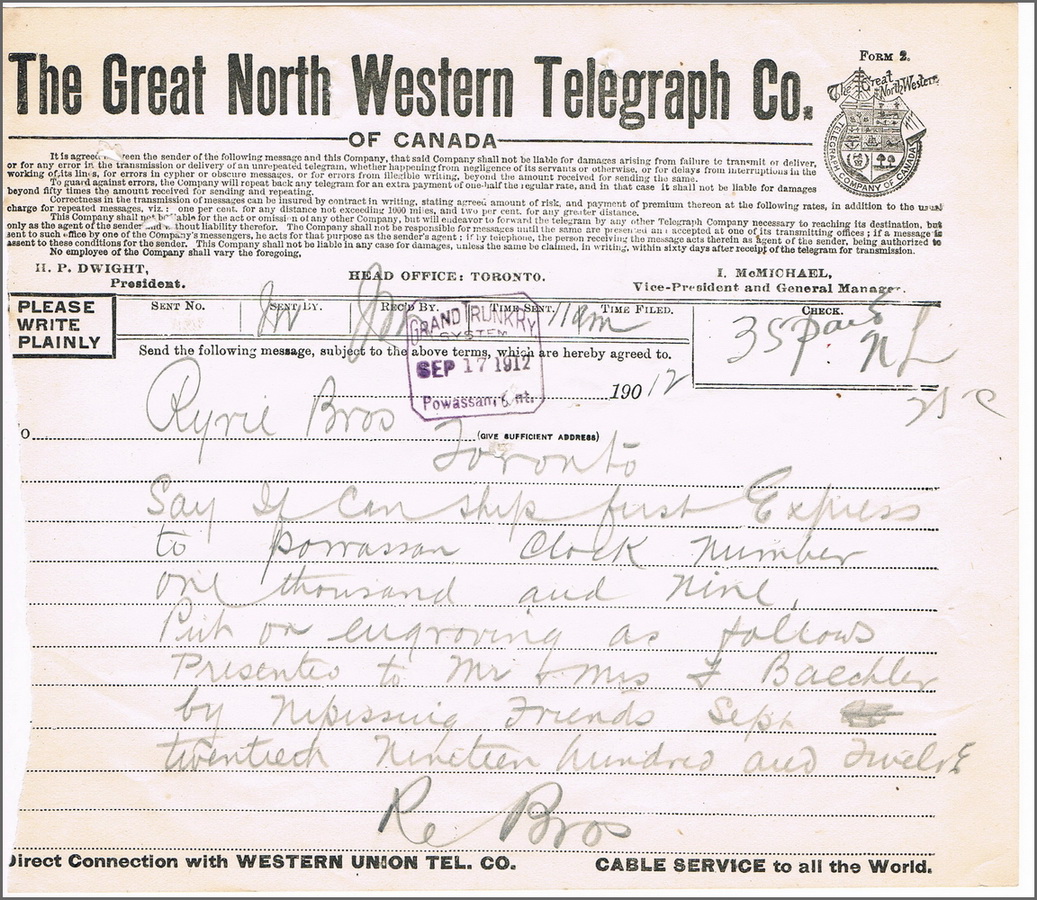 FORM 2.
The Great North Western Telegraph Co.
OF CANADA
The Great North Western
TELEGRAPH COMPANY OF CANADA
It is agreed between the sender of the following message and this Company, that said Company shall not be liable for damages arising from failure to transmit or deliver,
or for any error in the transmission or delivery of an unrepeated telegram, whether happening from negligence of its servants or otherwise, or for delays from interruptions in the
working of its lines, for errors in cypher or obscure messages, or for errors from illegible writing, beyond the amount received for sending the same.
To guard against errors, the Company will repeat back any telegram for an extra payment of one-half the regular rate, and in that case it shall not be liable for damages
beyond fifty times the amount received for sending and repeating.
Correctness in the transmission of messages can be insured by contract in writing, stating agreed amount of risk, and payment of premium thereon at the following rates, in addition to the usual
charge for repeated messages, viz.: one per cent. for any distance not exceeding 1000 miles, and two per cent. for any greater distance.
This Company shall not be liable for the act or omission of any other Company, but will endeavor to forward the telegram by any other Telegraph Company necessary to reaching its destination, but
only as the agent of the sender and without liability therefor. The Company shall not be responsible for messages until the same are presented and accepted at one of its transmitting offices; if a message is
sent to such office by one of the Company's messengers, he acts for that purpose as the sender's agent; if by telephone, the person receiving the message acts therein as agent of the sender, being authorized to
assent to these conditions for the sender. This Company shall not be liable in any case for damages, unless the same be claimed, in writing, within sixty days after receipt of the telegram for transmission.
No employee of the Company shall vary the foregoing,
H. P. DWIGHT, HEAD OFFICE: TORONTO. I. McMICHAEL,
President. Vice-President and General Manager.
PLEASE
WRITE
PLAINLY
SENT No. SENT BY. REC'D BY. TIME SENT. TIME FILED. CHECK.
11am 35 Paid
NL
Send the following message, subject to the above terms, which are hereby agreed to.
GRAND TRUNK RY.
SYSTEM
SEP 17 1912
Powassan, Ont.
190 12
25 c
o Ryrie Bros (GIVE SUFFICIENT ADDRESS)
Toronto
Say If Can ship first Express
to Powassan Clock Number
one thousand and Nine,
Put on engroving as follows
Presented to Mr & Mrs F Baechler
by Nipissing Friends Sept
twentieth Nineteen hundred and Twelve
Re Bros
Direct Connection with WESTERN UNION TEL. CO. CABLE SERVICE to all the World.